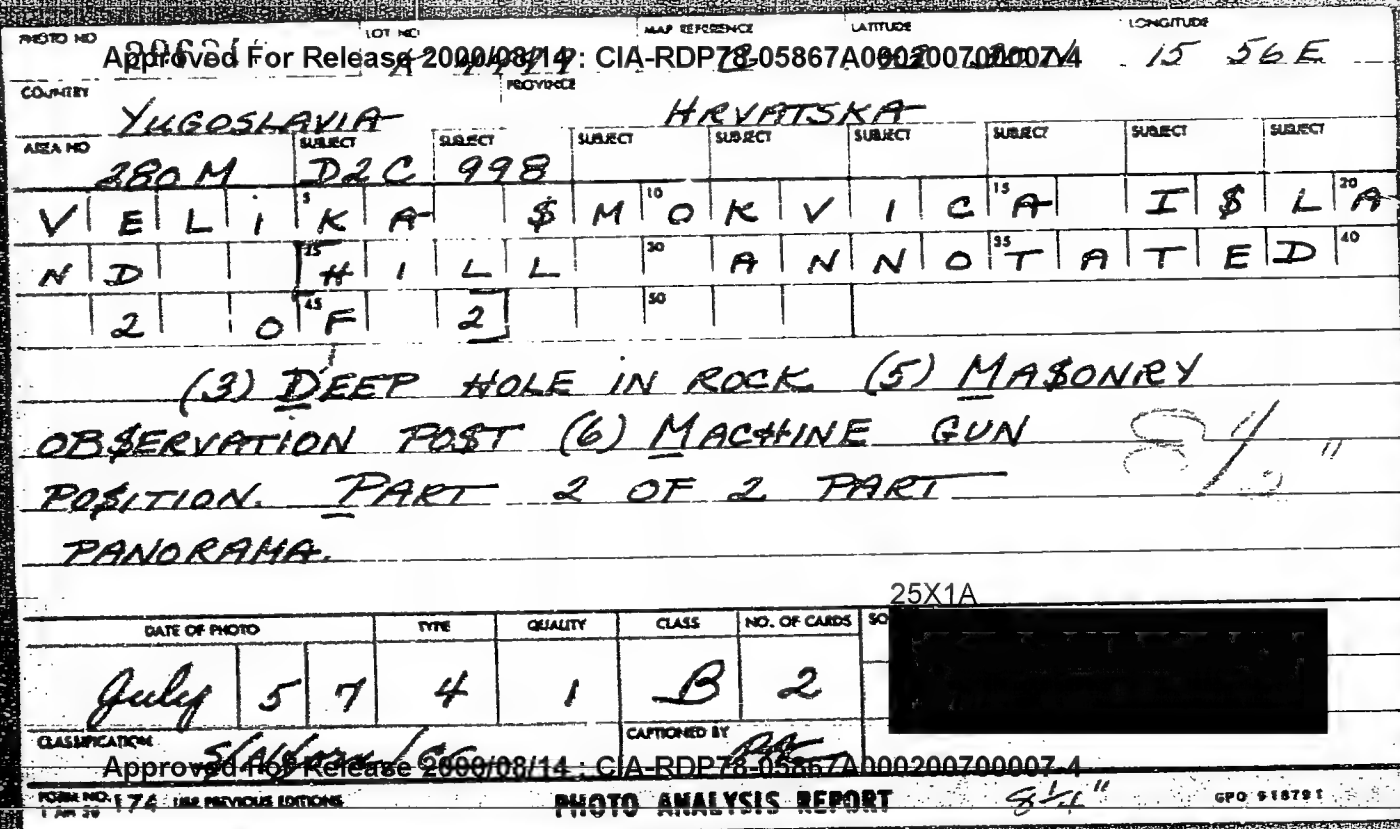 PHOTO NO LOT NO MAP REFERENCE LATITUDE LONGITUDE
Approved For Release 2000/08/14 : CIA-RDP78-05867A000200700007-4 15 56 E
COUNTRY PROVINCE
YUGOSLAVIA HRVATSKA
AREA NO SUBJECT SUBJECT SUBJECT SUBJECT SUBJECT SUBJECT SUBJECT SUBJECT
280M D2C 998
5 10 15 20
VELIKA $MOKVICA I$LA
25 30 35 40
ND HILL ANNOTATED
45 50
2 OF 2
(3) DEEP HOLE IN ROCK (5) MA$ONRY
OB$ERVATION PO$T (6) MACHINE GUN
PO$ITION. PART 2 OF 2 PART
PANORAMA.
25X1A
DATE OF PHOTO TYPE QUALITY CLASS NO. OF CARDS SO
July 5 7 4 1 B 2
CLASSIFICATION CAPTIONED BY
Approved For Release 2000/08/14 : CIA-RDP78-05867A000200700007-4
FORM NO. 174 USE PREVIOUS EDITIONS PHOTO ANALYSIS REPORT 8 1/4" GPO 918791